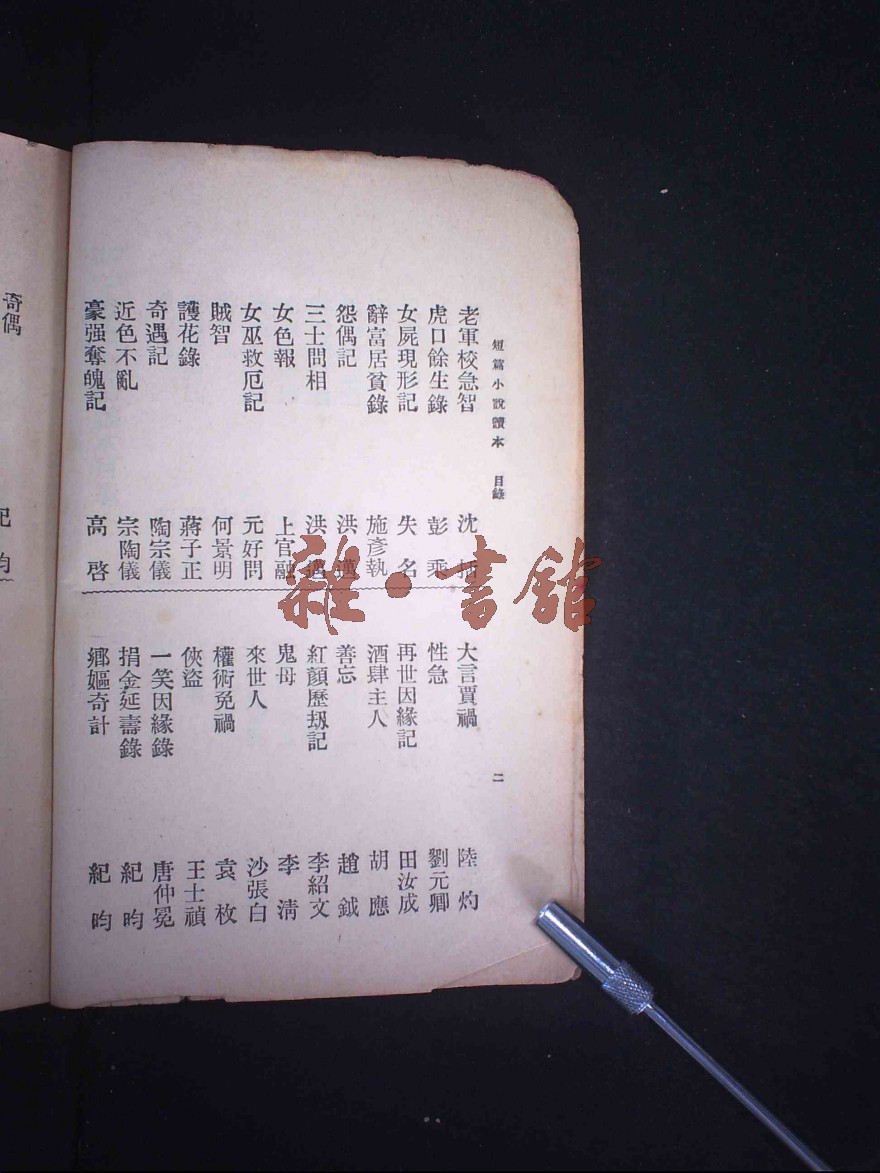 短篇小說讀本 目錄 二
老軍校急智 沈括
虎口餘生錄 彭乘
女屍現形記 失名
辭富居貧錄 施彥執
怨偶記 洪邁
三士問相 洪邁
女色報 上官融
女巫救厄記 元好問
賊智 何景明
護花錄 蔣子正
奇遇記 陶宗儀
近色不亂 宗陶儀
豪强奪魄記 高啓
大言賈禍 陸灼
性急 劉元卿
再世因緣記 田汝成
酒肆主人 胡應
善忘 趙鉞
紅顏歷刼記 李紹文
鬼母 李清
來世人 沙張白
權術免禍 袁枚
俠盜 王士禎
一笑因緣錄 唐仲冕
捐金延壽錄 紀昀
鄉嫗奇計 紀昀
奇偶 紀昀
雜·書館